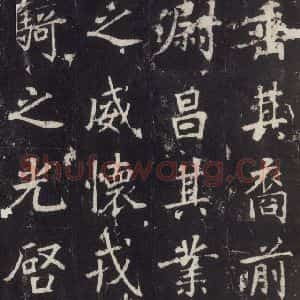 垂其裔前
尉昌其業
之威懷戎
騎之光啓
Shufawang.Cn